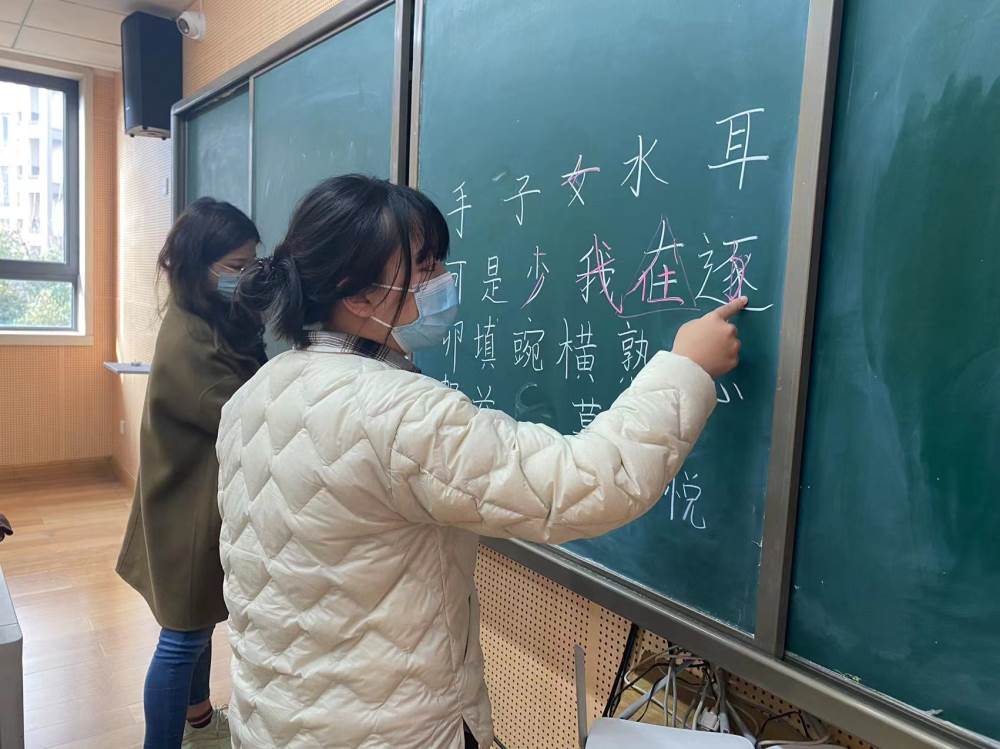 手 子 女 水 耳
可 是 少 我 在 逐
卵 填 豌 横 熟
悦